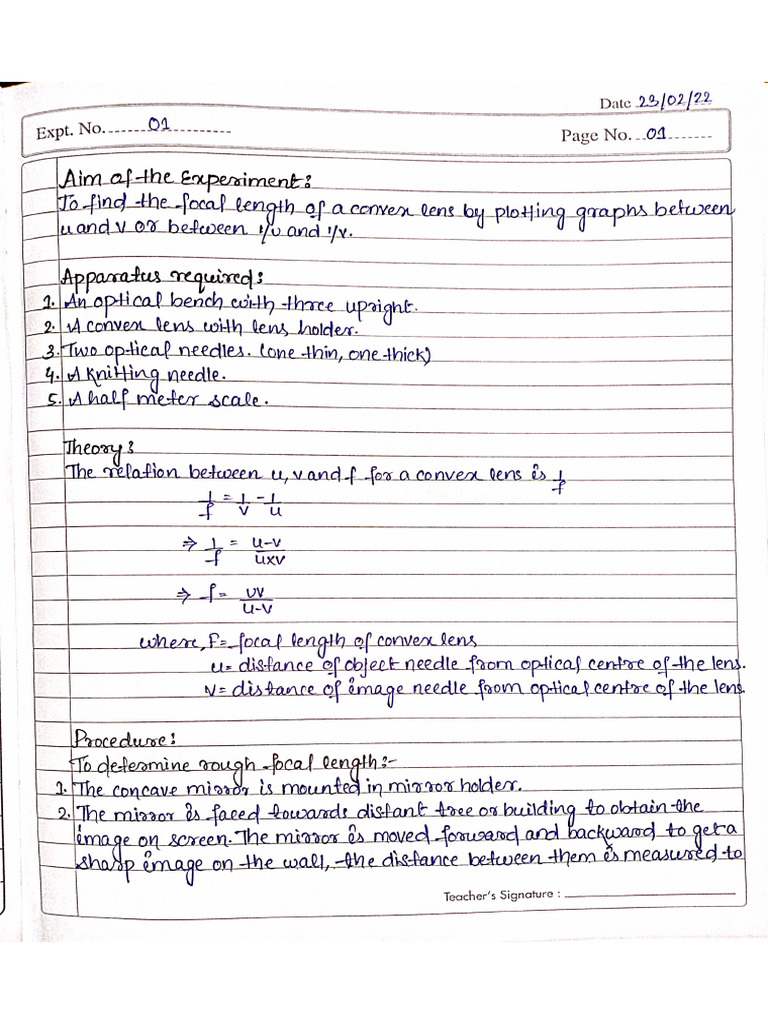 Date 23/02/22
Expt. No. 01
Page No. 01
Aim of the Experiment:
To find the focal length of a convex lens by plotting graphs between
u and v or between 1/u and 1/v.
Apparatus required:
1. An optical bench with three upright.
2. A convex lens with lens holder.
3. Two optical needles. (one thin, one thick)
4. A Knitting needle.
5. A half meter scale.
Theory:
The relation between u, v and f for a convex lens is 1/f
1/f = 1/v - 1/u
⇒ 1/f = u-v/u×v
⇒ f = uv/u-v
where, F = focal length of convex lens
u = distance of object needle from optical centre of the lens.
v = distance of image needle from optical centre of the lens.
Procedure:
To determine rough focal length:-
1. The concave mirror is mounted in mirror holder.
2. The mirror is faced towards distant tree or building to obtain the
image on screen. The mirror is moved forward and backward to get a
sharp image on the wall, the distance between them is measured to
Teacher's Signature :